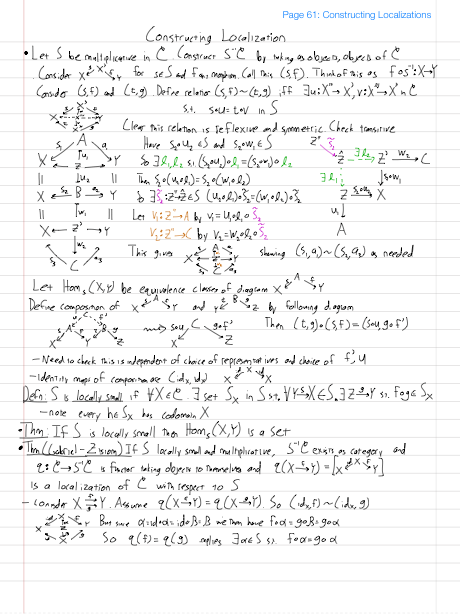 Page 61: Constructing Localizations
Constructing Localization
• Let S be multiplicative in C. Construct S⁻¹C by taking as objects, objects of C
Consider X ←s X' →f Y for s∈S and f any morphism. Call this (s,f). Think of this as f∘s⁻¹: X→Y
Consider (s,f) and (t,g). Define relation (s,f)~(t,g) iff ∃u:X'''→X', v:X'''→X'' in C
s.t. s∘u=t∘v in S
Clear this relation is reflexive and symmetric. Check transitive
Have s₂∘u₂∈S and s₂∘w₁∈S
So ∃l₁,l₂ s.t. (s₂∘u₂)∘l₁=(s₂∘w₁)∘l₂
Then s₂∘(u₂∘l₁)=s₂∘(w₁∘l₂)
Let v₁:Z''→A by v₁=u₁∘l₁∘s̃₂
v₂:Z''→C by v₂=w₂∘l₂∘s̃₂
This gives
showing (s₁,a₁)~(s₃,a₃) as needed
Let Hom_S(X,Y) be equivalence classes of diagram X ←s A →f Y
Define composition of X ←s A →f Y and Y ←t B →g Z by following diagram
Then (t,g)∘(s,f)=(s∘u, g∘f')
- Need to check this is independent of choice of representatives and choice of f', u
- Identity maps of composition are (id_X, id_X)
Defn: S is locally small if ∀X∈C. ∃ set S_X in S s.t. ∀Y→X∈S, ∃Z→Y s.t. f∘g∈S_X
- note every h∈S_X has codomain X
• Thm: If S is locally small then Hom_S(X,Y) is a set
• Thm (Gabriel-Zisman) If S locally small and multiplicative, S⁻¹C exists as category and
q: C→S⁻¹C is functor taking objects to themselves and q(X→f Y)=[X ←id X →f Y]
is a localization of C with respect to S
- consider X ⇉ Y. Assume q(X→f Y)=q(X→g Y). So (id_X,f)~(id_X,g)
But since α=id∘α=id∘β=β we then have f∘α=g∘β=g∘α
So q(f)=q(g) implies ∃α∈S s.t. f∘α=g∘α